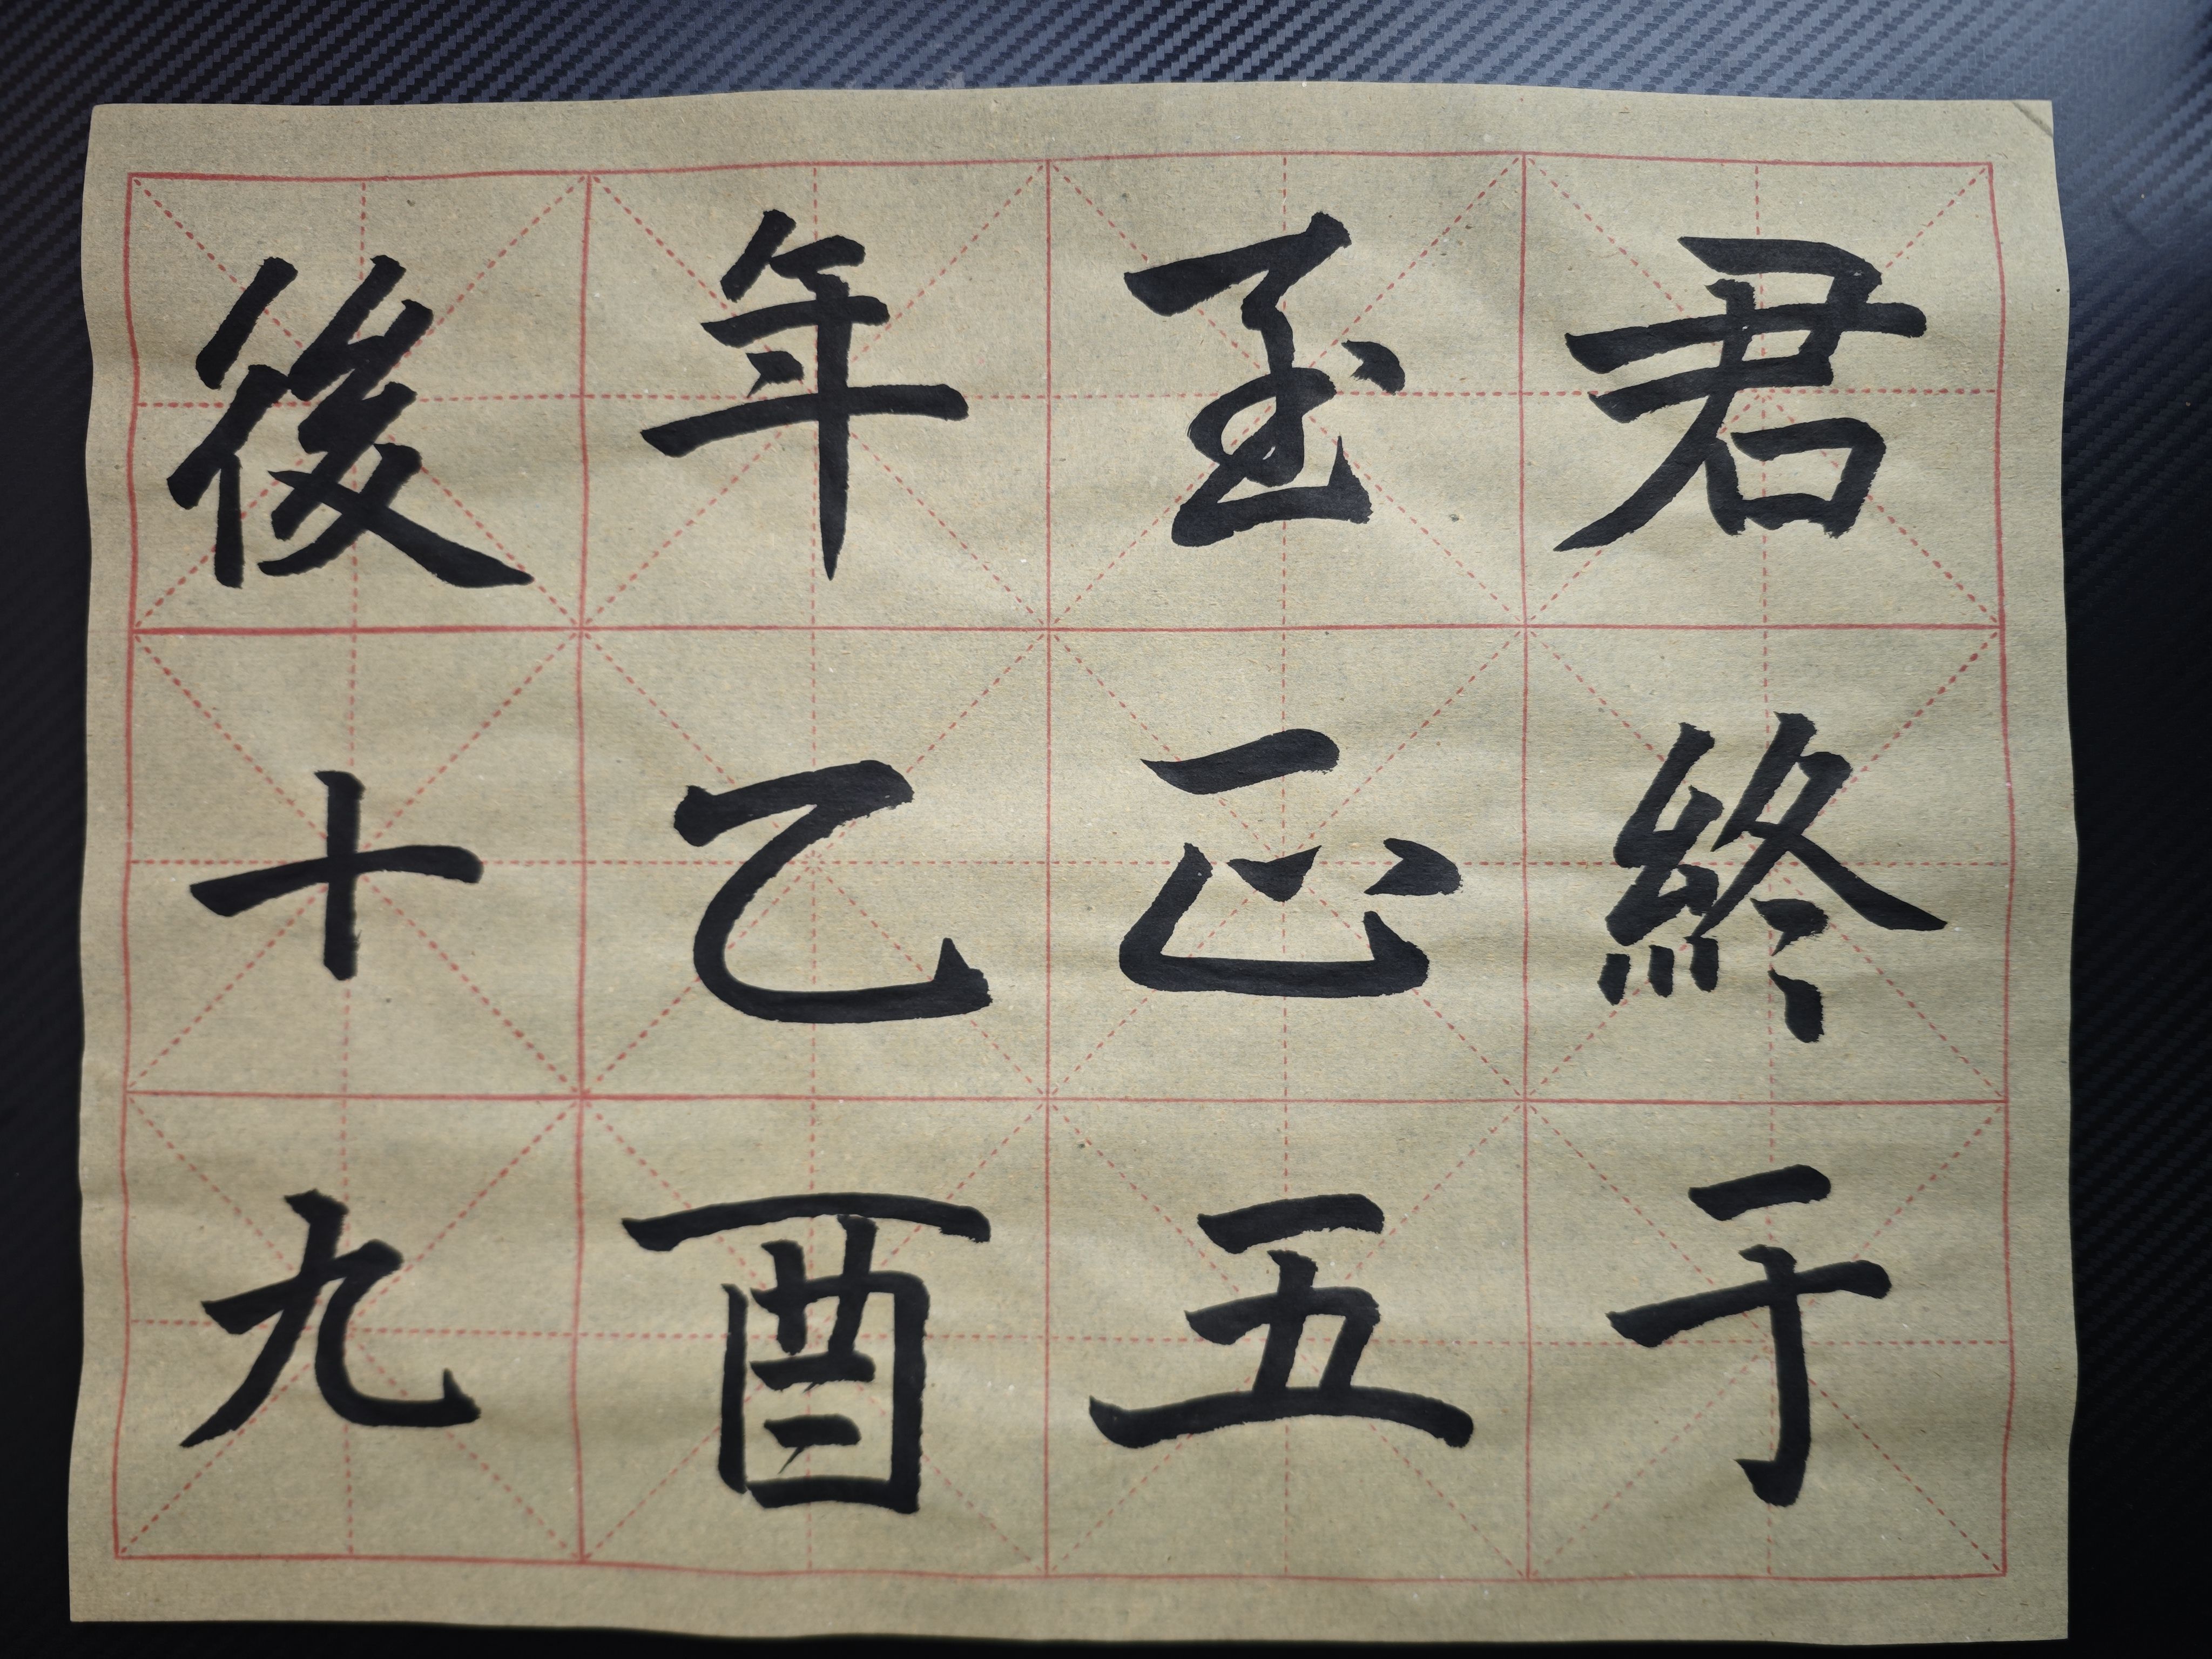 君終于
至正五
年乙酉
後十九